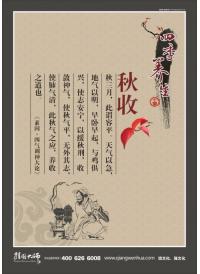 四季养生
秋收
秋三月，此谓容平。天气以急，
地气以明，早卧早起，与鸡俱
兴，使志安宁，以缓秋刑，收
敛神气，使秋气平，无外其志，
使肺气清，此秋气之应，养收
之道也
《素问·四气调神大论》
400 626 6008 www.qiangwenhua.com